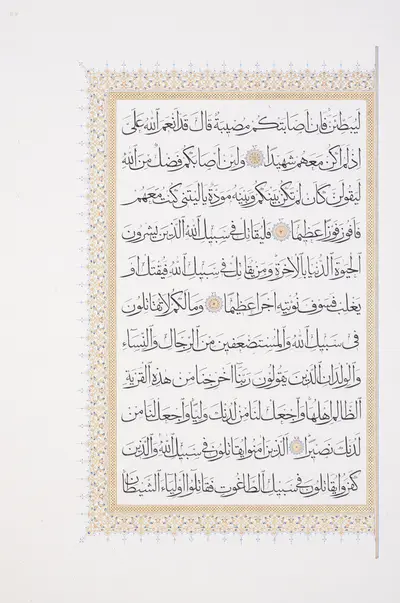 ليبطئن فإن أصابتكم مصيبة قال قد أنعم الله علي
إذ لم أكن معهم شهيدا ولئن أصابكم فضل من الله
ليقولن كأن لم تكن بينكم وبينه مودة ياليتني كنت معهم
فأفوز فوزا عظيما فليقاتل في سبيل الله الذين يشرون
الحيوة الدنيا بالآخرة ومن يقاتل في سبيل الله فيقتل أو
يغلب فسوف نؤتيه أجرا عظيما وما لكم لا تقاتلون
في سبيل الله والمستضعفين من الرجال والنساء
والولدان الذين يقولون ربنا أخرجنا من هذه القرية
الظالم أهلها واجعل لنا من لدنك وليا واجعل لنا من
لدنك نصيرا الذين آمنوا يقاتلون في سبيل الله والذين
كفروا يقاتلون في سبيل الطاغوت فقاتلوا أولياء الشيطان